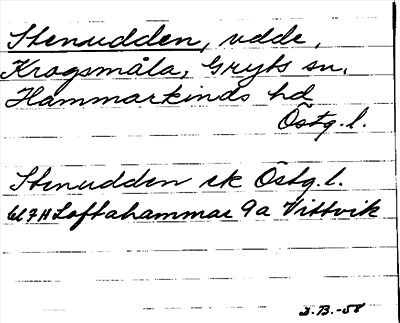 Stenudden, udde,
Krogsmåla, Gryts sn.
Hammarkinds hd
Östg. l.
Stenudden ek Östg. l.
6d7H Loftahammar 9a Vittvik
D.B.-58